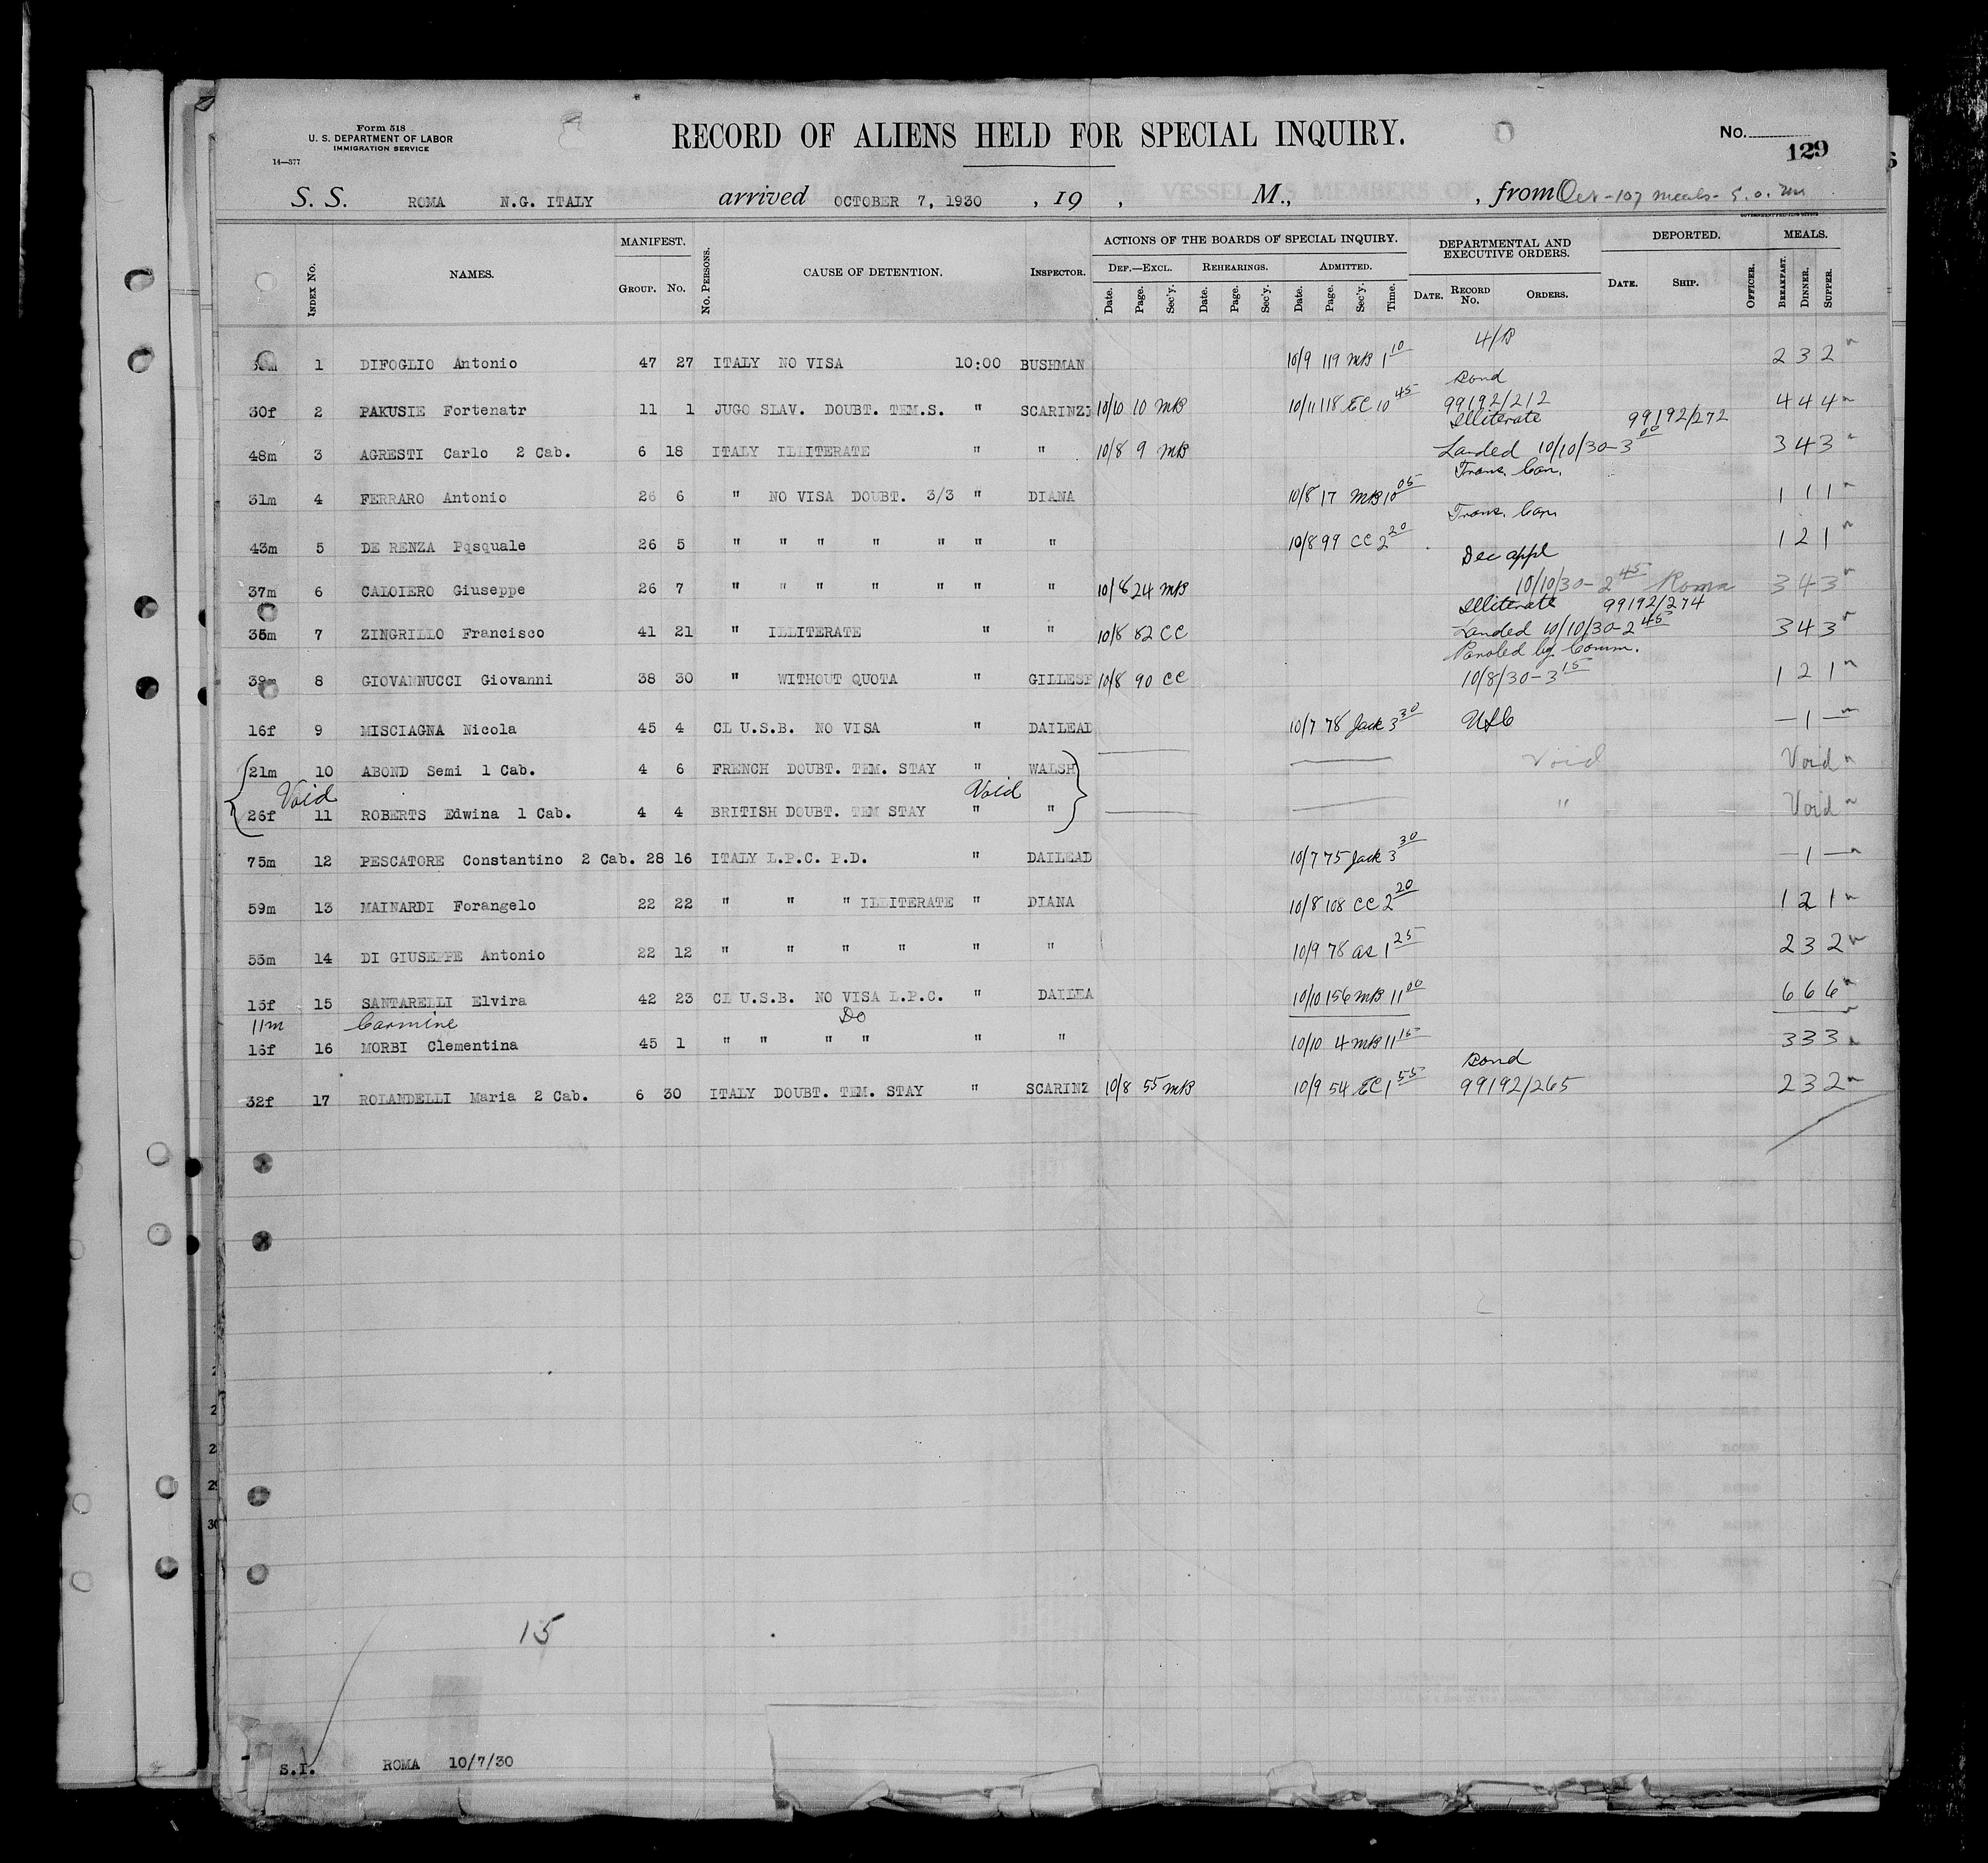 Form 518
U. S. DEPARTMENT OF LABOR
IMMIGRATION SERVICE
14—377
RECORD OF ALIENS HELD FOR SPECIAL INQUIRY.
No.
129
S. S. ROMA N.G. ITALY arrived OCTOBER 7, 1930 , 19 , M., , from 107 meals
INDEX No. NAMES. MANIFEST. GROUP. No. No. PERSONS. CAUSE OF DETENTION. INSPECTOR. ACTIONS OF THE BOARDS OF SPECIAL INQUIRY. DEF.—EXCL. Date. Page. Sec'y. REHEARINGS. Date. Page. Sec'y. ADMITTED. Date. Page. Sec'y. Time. DEPARTMENTAL AND EXECUTIVE ORDERS. DATE. RECORD No. ORDERS. DEPORTED. DATE. SHIP. OFFICER. MEALS. BREAKFAST. DINNER. SUPPER.
4/B
1 DIFOGLIO Antonio 47 27 ITALY NO VISA 10:00 BUSHMAN 10/9 119 MB 1 10 2 3 2
Bond
30f 2 PAKUSIE Fortenatr 11 1 JUGO SLAV. DOUBT. TEM.S. " SCARINZI 10/10 10 MB 10/11 118 EC 10 45 99192/212 4 4 4
Illiterate 99192/272
48m 3 AGRESTI Carlo 2 Cab. 6 18 ITALY ILLITERATE " " 10/8 9 MB Landed 10/10/30-3 00 3 4 3
Trans. Can.
31m 4 FERRARO Antonio 26 6 " NO VISA DOUBT. 3/3 " DIANA 10/8 17 MB 10 05 1 1 1
Trans. Can.
43m 5 DE RENZA Pasquale 26 5 " " " " " " " 10/8 99 CC 2 20 1 2 1
Dec appl
37m 6 CALOIERO Giuseppe 26 7 " " " " " " " 10/8 24 MB 10/10/30-2 45 Roma 3 4 3
Illiterate 99192/274
35m 7 ZINGRILLO Francisco 41 21 " ILLITERATE " " 10/8 82 CC Landed 10/10/30-2 45 3 4 3
Paroled by Comm.
39m 8 GIOVANNUCCI Giovanni 38 30 " WITHOUT QUOTA " GILLESP 10/8 90 CC 10/8/30-3 15 1 2 1
16f 9 MISCIAGNA Nicola 45 4 CL U.S.B. NO VISA " DAILEAD 10/7 78 Jack 3 30 USC — 1 —
21m 10 ABOND Semi 1 Cab. 4 6 FRENCH DOUBT. TEM. STAY " WALSH Void Void
Void Void
26f 11 ROBERTS Edwina 1 Cab. 4 4 BRITISH DOUBT. TEM STAY " " " Void
75m 12 PESCATORE Constantino 2 Cab. 28 16 ITALY L.P.C. P.D. " DAILEAD 10/7 75 Jack 3 30 — 1 —
59m 13 MAINARDI Forangelo 22 22 " " " ILLITERATE " DIANA 10/8 108 CC 2 20 1 2 1
55m 14 DI GIUSEPPE Antonio 22 12 " " " " " " 10/9 78 as 1 25 2 3 2
15f 15 SANTARELLI Elvira 42 23 CL U.S.B. NO VISA L.P.C. " DAILEA 10/10 156 MB 11 00 6 6 6
11m Carmine Do
16f 16 MORBI Clementina 45 1 " " " " " " 10/10 4 MB 11 15 3 3 3
Bond
32f 17 ROLANDELLI Maria 2 Cab. 6 30 ITALY DOUBT. TEM. STAY " SCARINZ 10/8 55 MB 10/9 54 EC 1 55 99192/265 2 3 2
15
S.I. ROMA 10/7/30